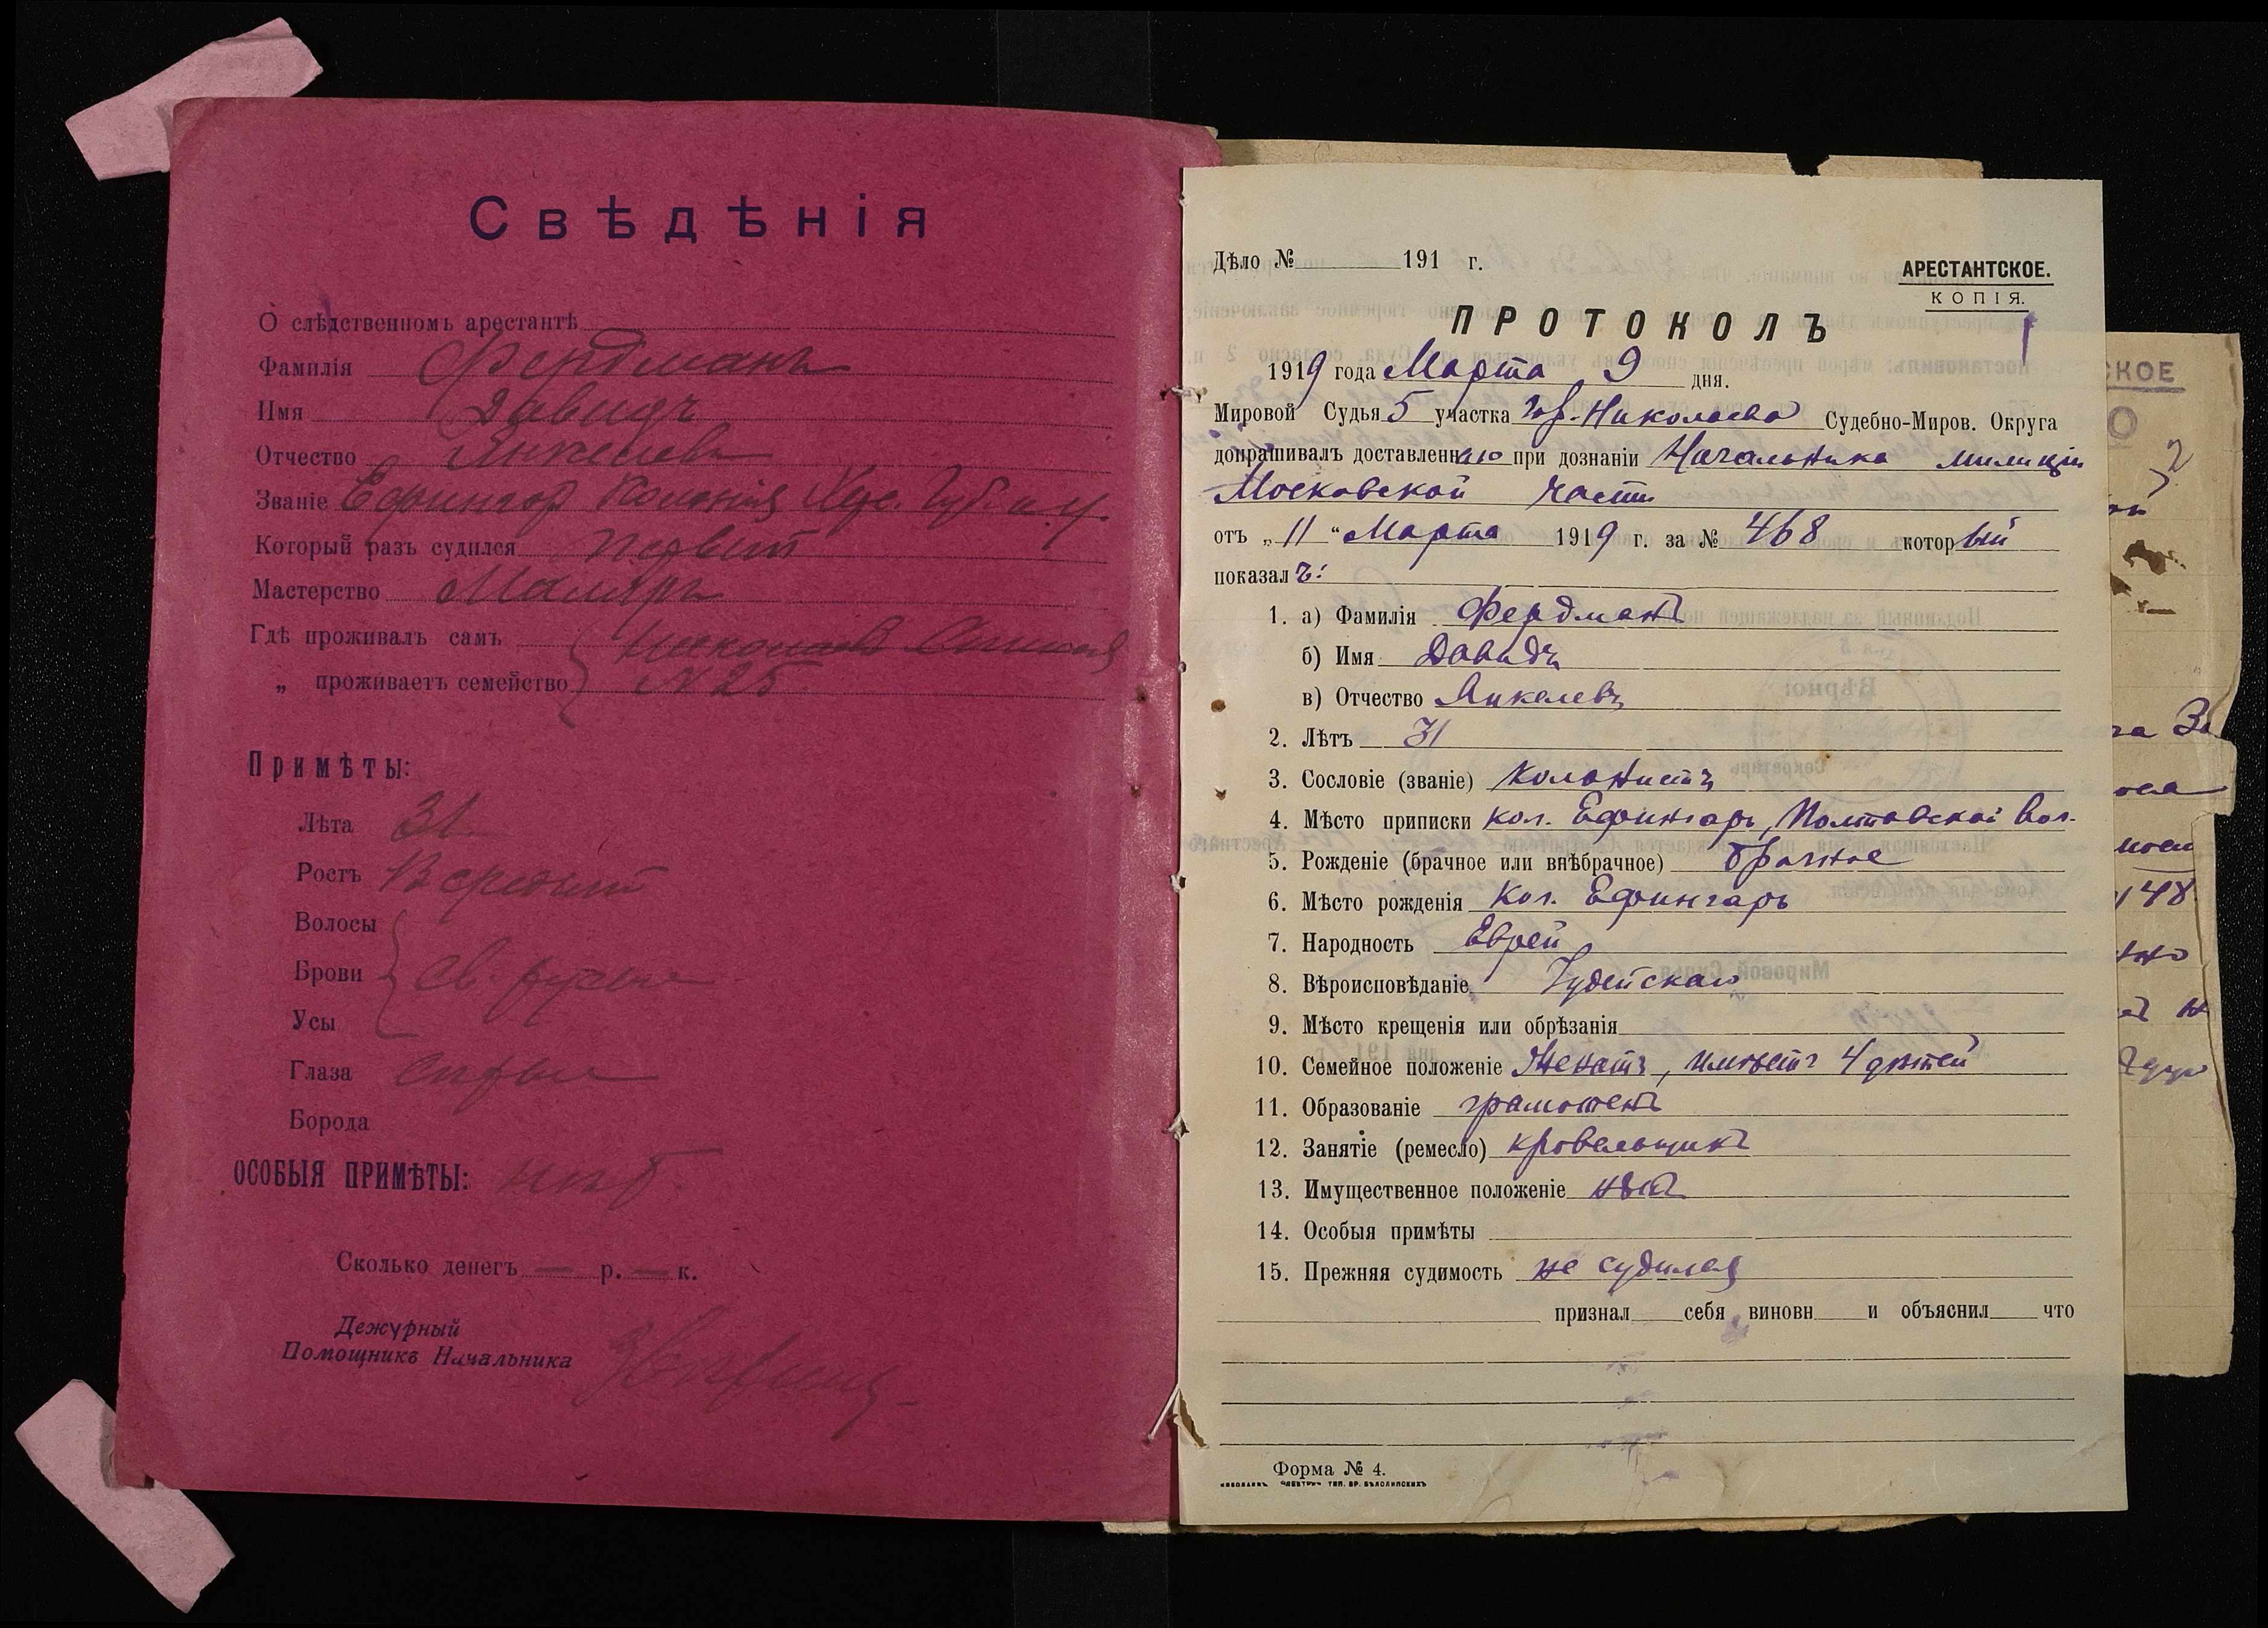 Свѣдѣнія
О слѣдственномъ арестантѣ
Фамилія Фердманъ
Имя Давидъ
Отчество Янкелевъ
Званіе Ефингар Колонія Хер. Губ. и у.
Который разъ судился первый
Мастерство Маляръ
Гдѣ проживалъ самъ Николаевъ
„ проживаетъ семейство N 25
Примѣты:
Лѣта 31.
Ростъ средній
Волосы
Брови св. русые
Усы
Глаза сѣрые
Борода
ОСОБЫЯ ПРИМѢТЫ: нѣт.
Сколько денегъ — р. — к.
Дежурный
Помощникъ Начальника
Дѣло № 191 г.
АРЕСТАНТСКОЕ.
КОПІЯ.
1
ПРОТОКОЛЪ
1919 года Марта 9 дня.
Мировой Судья 5 участка гор. Николаева Судебно-Миров. Округа
допрашивалъ доставленнаго при дознаніи Начальника милиціи
Московской части
отъ „11“ Марта 1919 г. за № 468 который
показалъ:
1. а) Фамилія Фердманъ
б) Имя Давидъ
в) Отчество Янкелевъ
2. Лѣтъ 31
3. Сословіе (званіе) колонистъ
4. Мѣсто приписки кол. Ефингаръ, Полтавской вол.
5. Рожденіе (брачное или внѣбрачное) брачное
6. Мѣсто рожденія Кол. Ефингаръ
7. Народность Еврей
8. Вѣроисповѣданіе Іудейскаго
9. Мѣсто крещенія или обрѣзанія
10. Семейное положеніе Женатъ, имѣетъ 4 дѣтей
11. Образованіе грамотенъ
12. Занятіе (ремесло) кровельщикъ
13. Имущественное положеніе нѣтъ
14. Особыя примѣты
15. Прежняя судимость не судился
признал себя виновн и объяснил что
Форма № 4.
СКОЕ
О
2
148